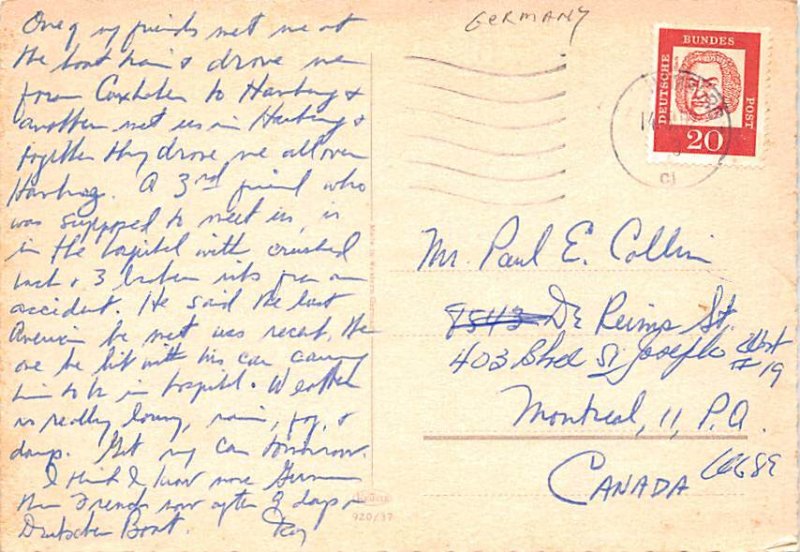 One of my friends met me at
the boat train & drove me
from Cuxhafen to Hamburg &
another met us in Hamburg &
together they drove me all over
Hamburg. A 3rd friend who
was supposed to meet us, is
in the hospital with crushed
back & 3 broken ribs from an
accident. He said the last
American he met was recent, the
one he hit with his car causing
him to be in hospital. Weather
is really lousy, rain, fog, &
damp. Get my car tomorrow.
I think I know more German
than French now after 9 days on
Deutschen Boat.
GERMANY
DEUTSCHE
BUNDES
POST
20
14
Mr. Paul E. Collin
8543 De Reims St.
403 Blvd St Joseph West
# 19
Montreal, 11, P.Q.
CANADA
920/37